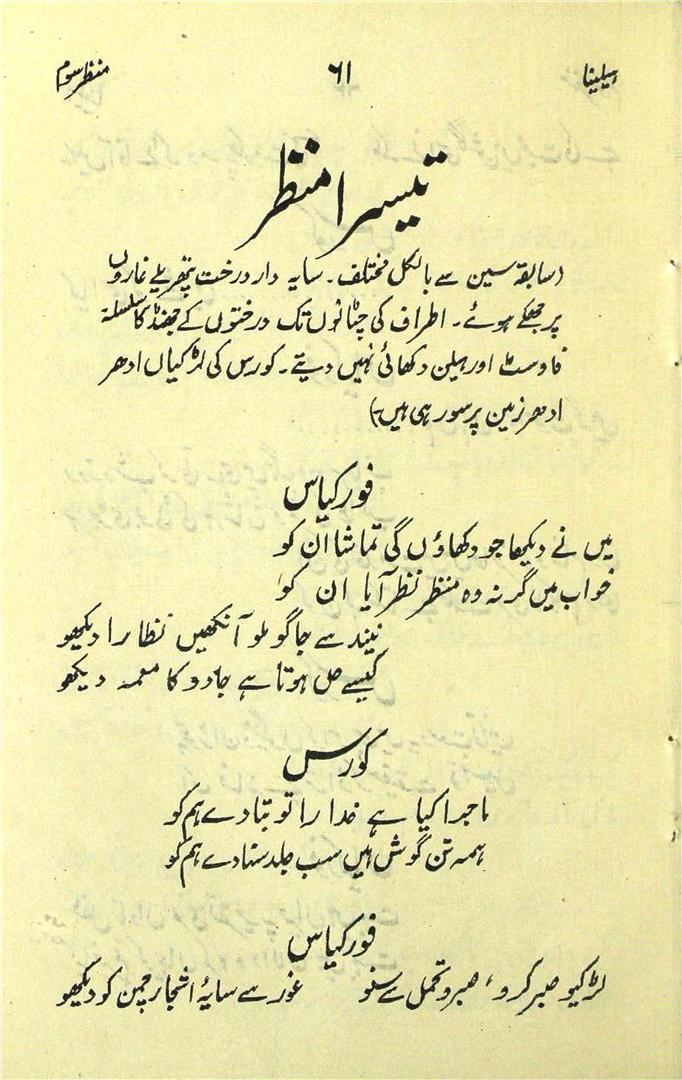 ہیلینا ۶۱ منظر سوم
تیسرا منظر
(سابقہ سین سے بالکل مختلف۔ سایہ دار درخت پتھریلے غاروں
پر جھکے ہوئے۔ اطراف کی چٹانوں تک درختوں کے جھنڈ کا سلسلہ
فاوسٹ اور ہیلن دکھائی نہیں دیتے۔ کورس کی لڑکیاں ادھر
ادھر زمین پر سو رہی ہیں)
فورکیاس
میں نے دیکھا جو دکھاؤں گی تماشا ان کو
خواب میں گر نہ وہ منظر نظر آیا ان کو
نیند سے جاگو ملو آنکھیں نظارا دیکھو
کیسے حل ہوتا ہے جادو کا معمہ دیکھو
کورس
ماجرا کیا ہے خدارا تو بتا دے ہم کو
ہمہ تن گوش ہیں سب جلد سنا دے ہم کو
فورکیاس
لڑکیو صبر کرو، صبر و تحمل سے سنو غور سے سایۂ اشجار چمن کو دیکھو